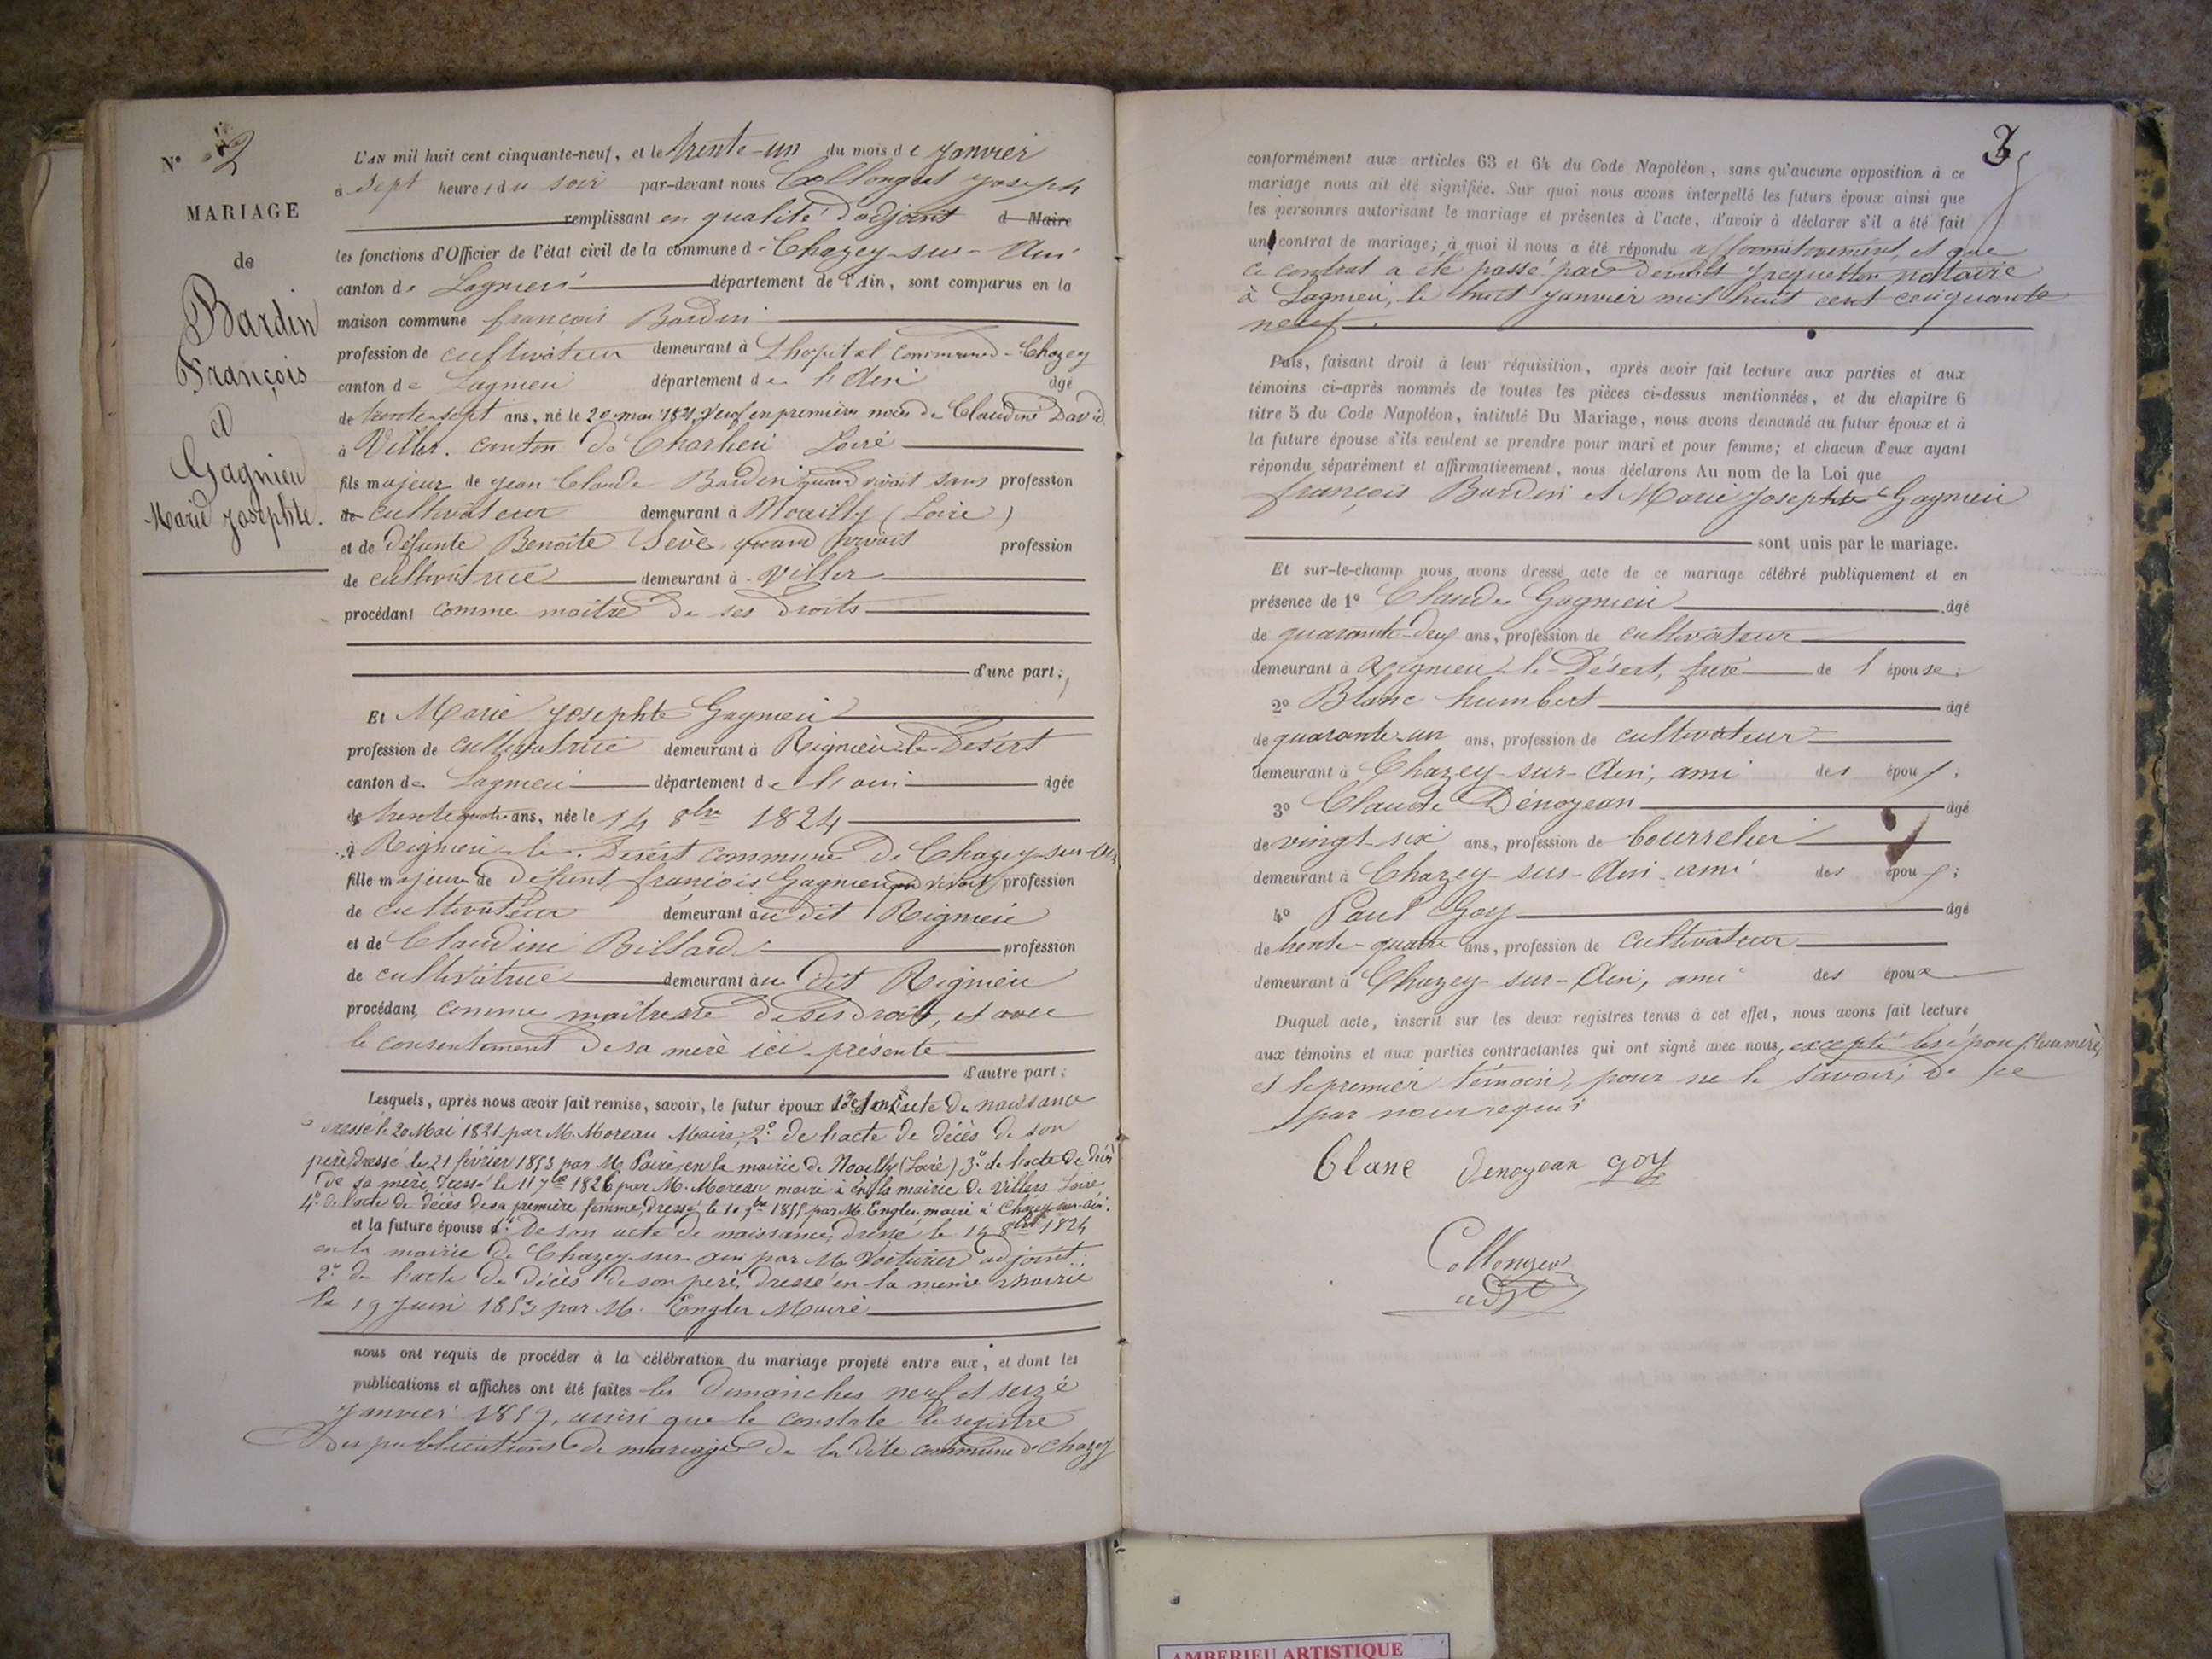 N° 2
MARIAGE
de
Bardin
François
et
Gagnieu
Marie Josephte.
L'AN mil huit cent cinquante-neuf, et le trente-un du mois de janvier
à sept heures du soir par-devant nous Collongeat Joseph
remplissant en qualité d'adjoint d Maire
les fonctions d'Officier de l'état civil de la commune de Chazey-sur-Ain
canton de Lagnieu département de l'Ain, sont comparus en la
maison commune françois Bardin
profession de cultivateur demeurant à L'hopital commune de Chazey
canton de Lagnieu département de l'Ain âgé
de trente-sept ans, né le 20 mai 1821, veuf en premières noces de Claudine David
à Viller. canton de Charlieu Loire
fils majeur de Jean Claude Bardin quand vivait sans profession
de cultivateur demeurant à Nouilly (Loire)
et de défunte Benoite Sève, quand vivait profession
de cultivatrice demeurant à Viller
procédant comme maître de ses droits
d'une part;
Et Marie Josephte Gagnieu
profession de cultivatrice demeurant à Rignieu-le-Désert
canton de Lagnieu département de l'ain âgée
de trente quatre ans, née le 14 8bre 1824
à Rignieu-le-Désert commune de Chazey-sur-Ain
fille majeure de défunt françois Gagnieu qd vivait profession
de cultivateur demeurant au dit Rignieu
et de Claudine Billard profession
de cultivatrice demeurant au dit Rignieu
procédant comme maîtresse de ses droits, et avec
le consentement de sa mère ici présente
d'autre part;
Lesquels, après nous avoir fait remise, savoir, le futur époux 1° de son acte de naissance
dressé le 20 Mai 1821 par M. Moreau Maire, 2° de l'acte de décès de son
père, dressé le 21 février 1853 par M. Poire, en la mairie de Nouilly (Loire) 3° de l'acte de décès
de sa mère, dressé le 11 7bre 1826 par M. Moreau maire à la mairie de Villers Loire
4° de l'acte de décès de sa première femme, dressé le 10 9bre 1855 par M. Engler, maire à Chazey-sur-Ain.
et la future épouse 1° De son acte de naissance, dressé le 14 8bre 1824
en la mairie de Chazey-sur-ain par M. Voiturier adjoint.
2° de l'acte de décès de son père, dressé en la même mairie
le 19 Juin 1853 par M. Engler Maire
nous ont requis de procéder à la célébration du mariage projeté entre eux, et dont les
publications et affiches ont été faites les dimanches neuf et seize
Janvier 1859, ainsi que le constate le registre
des publications de mariage de la dite commune de Chazey
3
conformément aux articles 63 et 64 du Code Napoléon, sans qu'aucune opposition à ce
mariage nous ait été signifiée. Sur quoi nous avons interpellé les futurs époux ainsi que
les personnes autorisant le mariage et présentes à l'acte, d'avoir à déclarer s'il a été fait
un contrat de mariage; à quoi il nous a été répondu affirmativement, et que
ce contrat a été passé par devant Jacquetton notaire
à Lagnieu, le huit janvier mil huit cent cinquante
neuf.
Puis, faisant droit à leur réquisition, après avoir fait lecture aux parties et aux
témoins ci-après nommés de toutes les pièces ci-dessus mentionnées, et du chapitre 6
titre 5 du Code Napoléon, intitulé Du Mariage, nous avons demandé au futur époux et à
la future épouse s'ils veulent se prendre pour mari et pour femme; et chacun d'eux ayant
répondu séparément et affirmativement, nous déclarons Au nom de la Loi que
françois Bardin et Marie Josephte Gagnieu
sont unis par le mariage.
Et sur-le-champ nous avons dressé acte de ce mariage célébré publiquement et en
présence de 1° Claude Gagnieu âgé
de quarante-deux ans, profession de cultivateur
demeurant à Rignieu-le-Désert, frère de l'épouse;
2° Blanc humbert âgé
de quarante-un ans, profession de cultivateur
demeurant à Chazey-sur-Ain, ami des époux;
3° Claude Dénojean âgé
de vingt-six ans, profession de bourrelier
demeurant à Chazey-sur-Ain ami des époux;
4° Paul Goy âgé
de trente-quatre ans, profession de cultivateur
demeurant à Chazey-sur-Ain, ami des époux
Duquel acte, inscrit sur les deux registres tenus à cet effet, nous avons fait lecture
aux témoins et aux parties contractantes qui ont signé avec nous, excepté les époux, leur mère,
et le premier témoin, pour ne le savoir, de ce
par nous requis
blanc denojean goy
Collongeat
adjt
AMBERIEU ARTISTIQUE